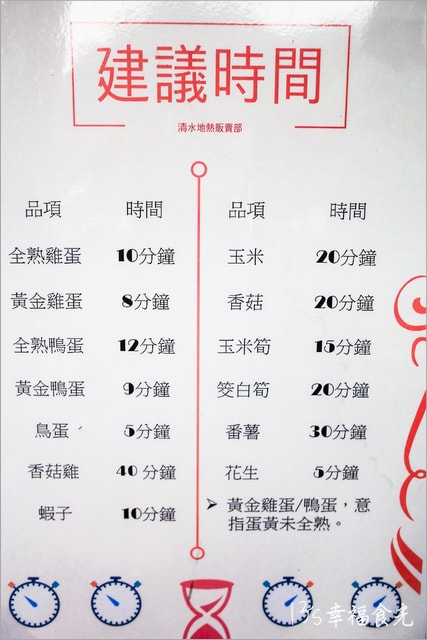 建議時間
清水地熱販賣部
品項 時間
全熟雞蛋 10分鐘
黃金雞蛋 8分鐘
全熟鴨蛋 12分鐘
黃金鴨蛋 9分鐘
鳥蛋 5分鐘
香菇雞 40 分鐘
蝦子 10分鐘
品項 時間
玉米 20分鐘
香菇 20分鐘
玉米筍 15分鐘
筊白筍 20分鐘
番薯 30分鐘
花生 5分鐘
➢ 黃金雞蛋/鴨蛋，意
指蛋黃未全熟。
幸福食光